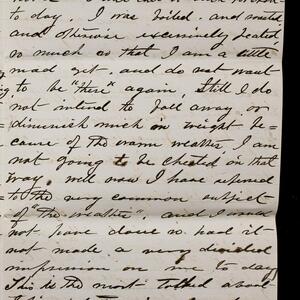 to day. I was boiled, and roasted
and otherwise excessively heated
so much so that I am a little
mad yet. and do not want
to be there" again, Still I do
not intend to fall away or
diminish much in weight be=
cause of the warm weather I am
not going to be cheated in that
way, well now I have refered
to the very common subject
of "the weather", and I would
not have done so had it
not made a very decided
impression on me to day
This is the most talked about